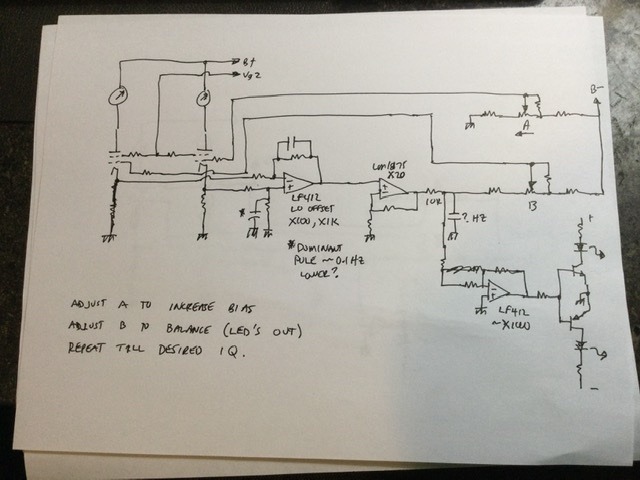 B+
Vg2
B-
A
LM1875
X20
LF412
LO OFFSET
X100, X1K
10K
?. HZ
B
*
* DOMINANT
POLE ~ 0.1 HZ
LOWER?
+
LF412
~X1000
-
ADJUST A TO INCREASE BIAS
ADJUST B TO BALANCE (LED'S OUT)
REPEAT TILL DESIRED IQ.